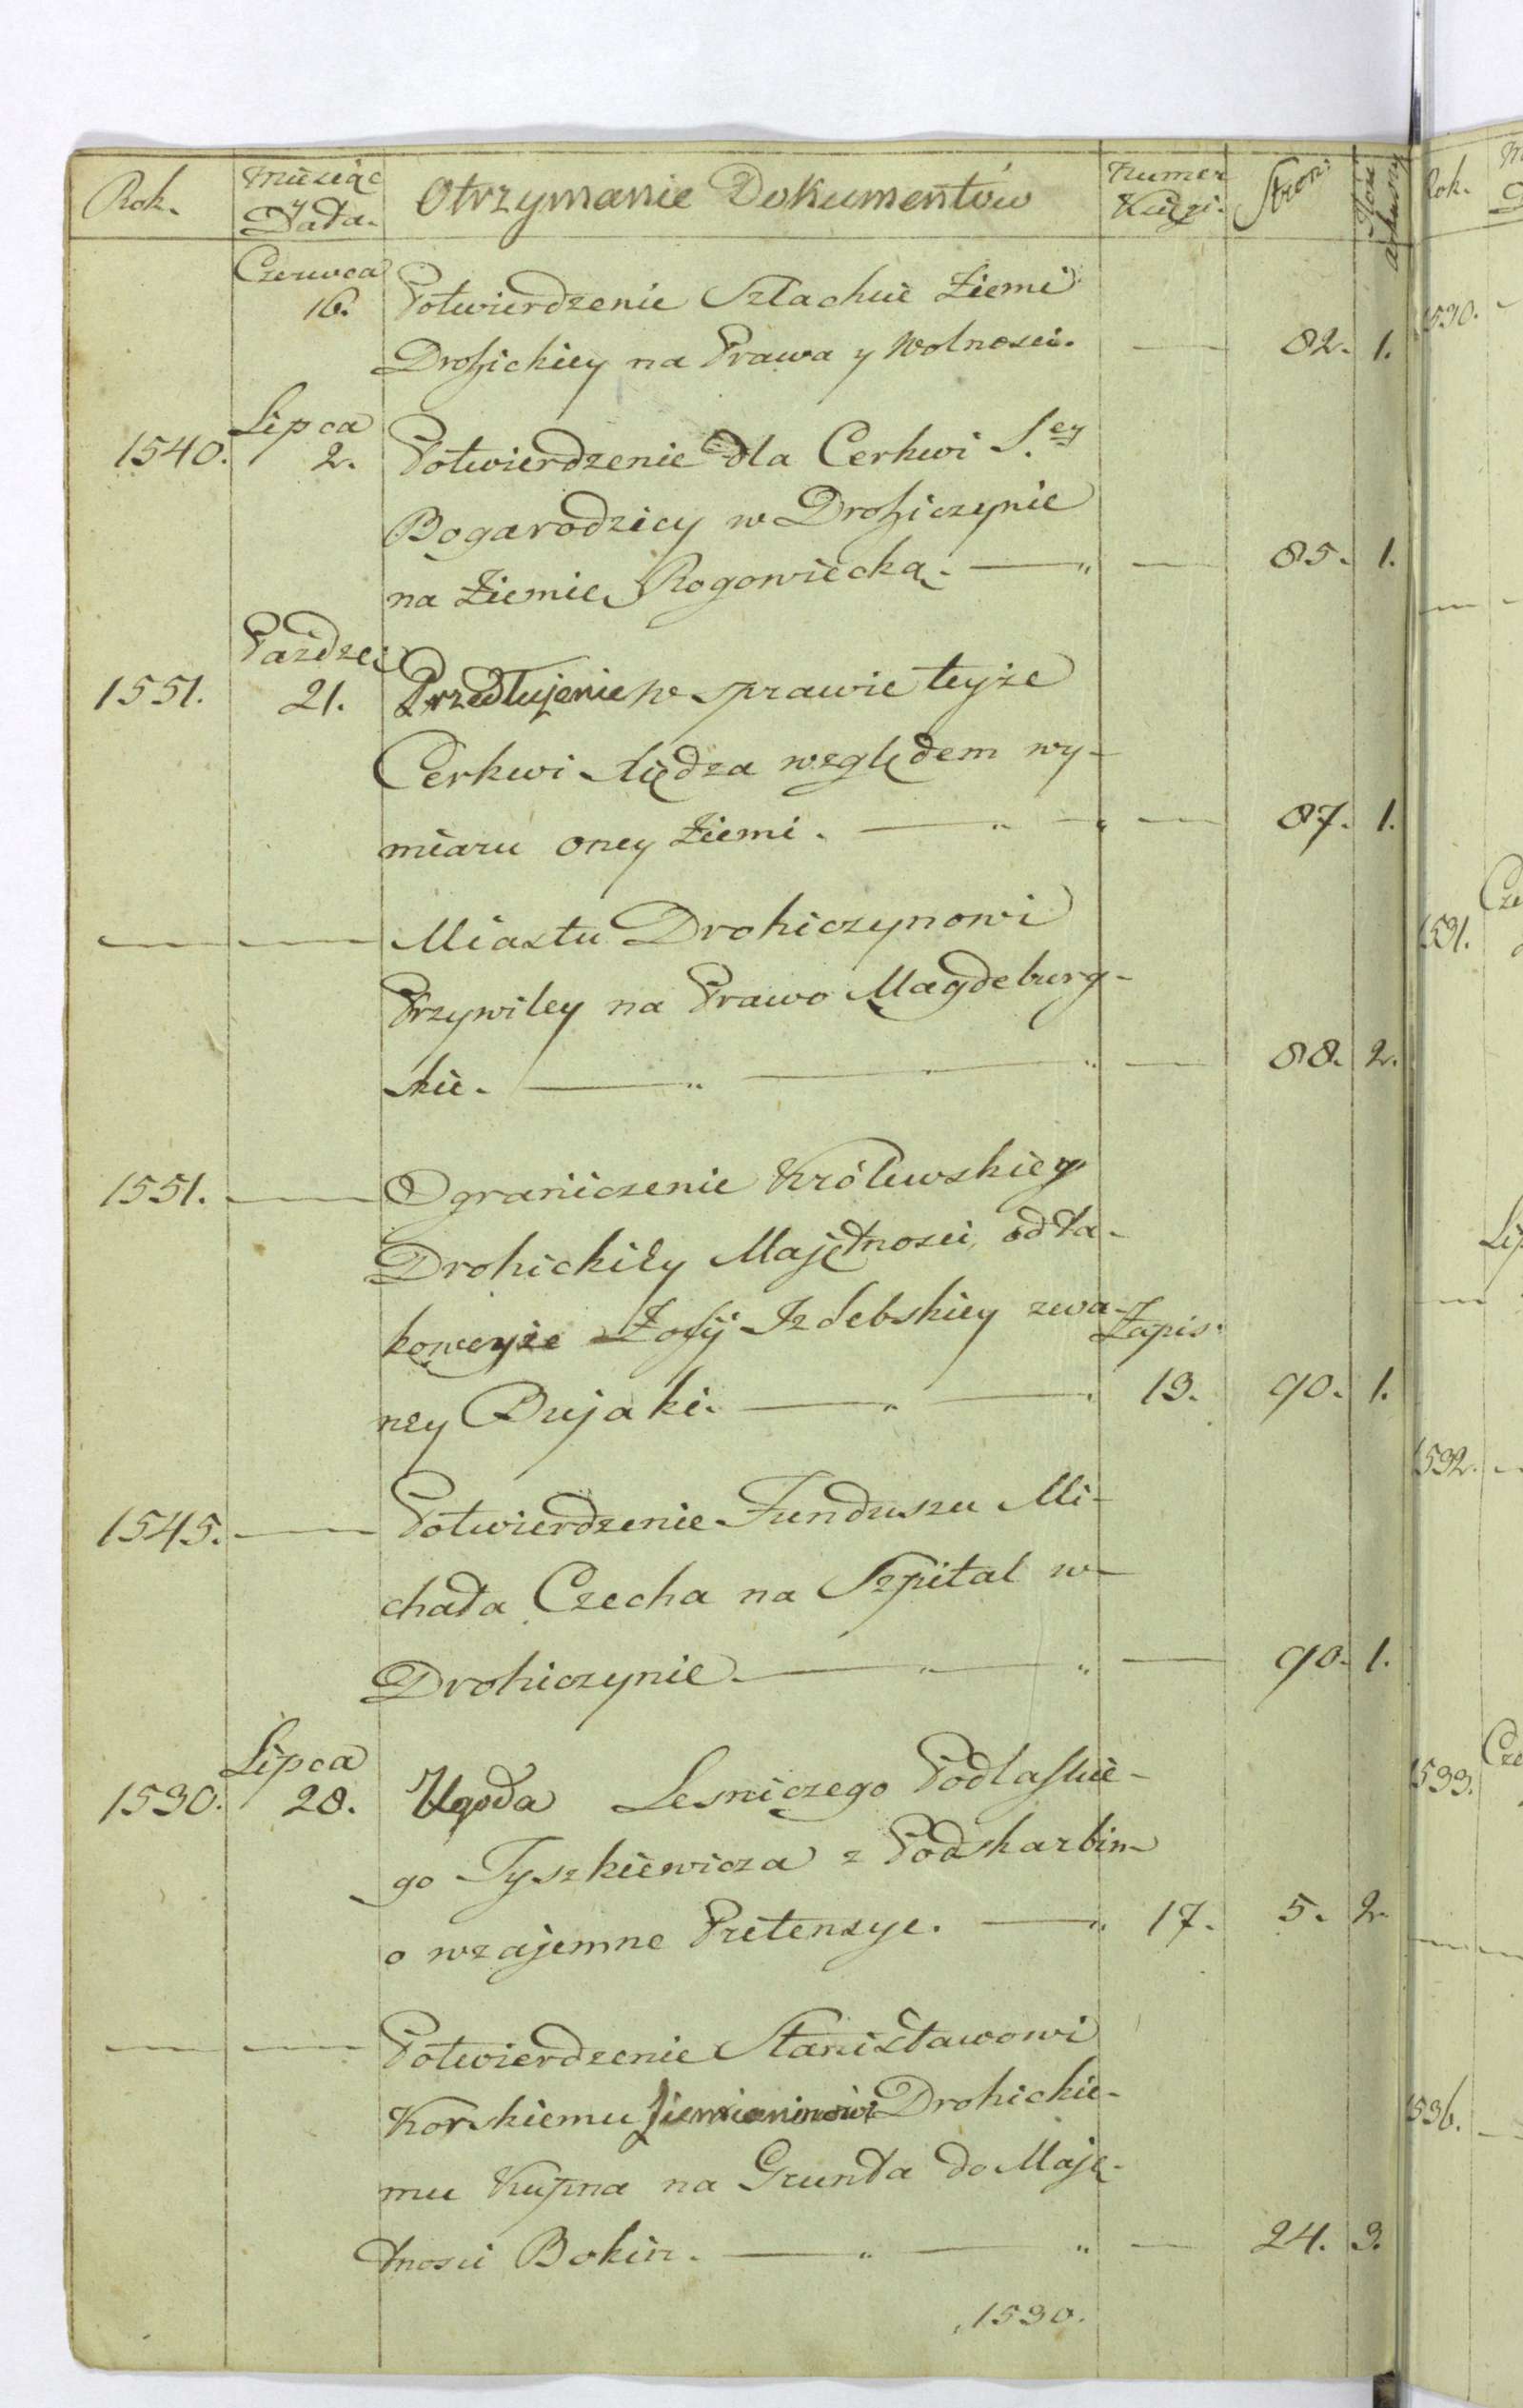 Rok. Miesiąc y Data. Otrzymanie Dokumentów Numer Księgi. Stron:
Czerwca
16. Potwierdzenie Szlachcie Ziemi
Drohickiey na Prawa y Wolnosci. — 82. 1.
Lipca
1540. 2. Potwierdzenie dla Cerkwi S.ey
Bogarodzicy w Drohiczynie
na Ziemię Rogowiecką. — 85. 1.
Pazdze:
1551. 21. w sprawie teyże
Cerkwi Sędza względem wy-
miaru oney Ziemi. — 87. 1.
— — Miastu Drohiczynowi
Przywiley na Prawo Magdeburg-
skie. — 88. 2.
1551. — Ograniczenie Królewskiey
Drohickiey Majętnosci, od ta-
Zofij Izdebskiey zwa- Zapis:
ney Bujaki. — 13. 90. 1.
1545. — Potwierdzenie Funduszu Mi-
chała Czecha na Szpital w
Drohiczynie. — 90. 1.
Lipca
1530. 28. Ugoda Lesniczego Podlaskie-
go Tyszkiewicza z Podskarbim
o wzajemne Pretensye. — 17. 5. 2.
— — Potwierdzenie Stanisławowi
Korskiemu Ziemianinowi Drohickie-
mu Kupna na Grunta do Maję-
tnosci Bokin. — 24. 3.
1530.
Rok.
1530.
1531.
1532.
1533.
1536.